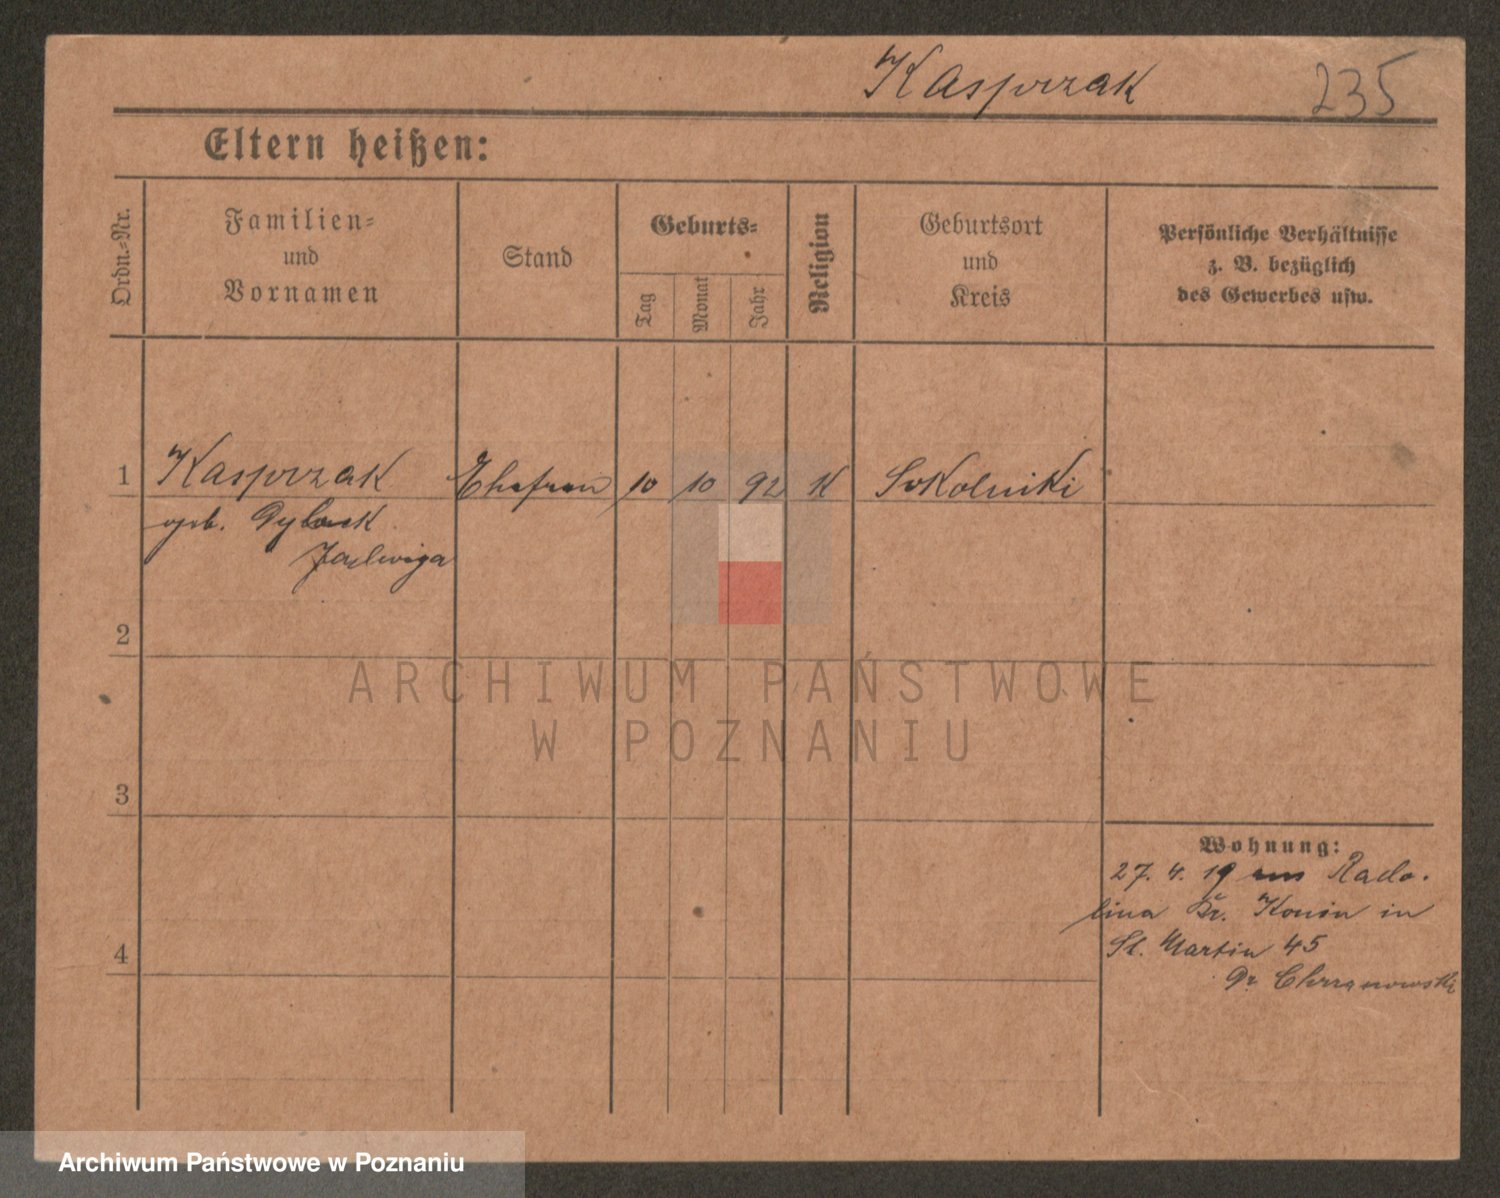 Kasprzak 235
Eltern heißen:
Ordn.-Nr.
Familien-
und
Vornamen
Stand
Geburts-
Tag
Monat
Jahr
Religion
Geburtsort
und
Kreis
Persönliche Verhältnisse
z. B. bezüglich
des Gewerbes usw.
1 Kasprzak Ehefrau 10 10 92 K Sokolniki
geb.
Jadwiga
2
3
4
Wohnung:
27. 4. 19 aus Rado-
lina Kr. Konin in
St. Martin 45
Chrzanowski
ARCHIWUM PAŃSTWOWE
W POZNANIU
Archiwum Państwowe w Poznaniu